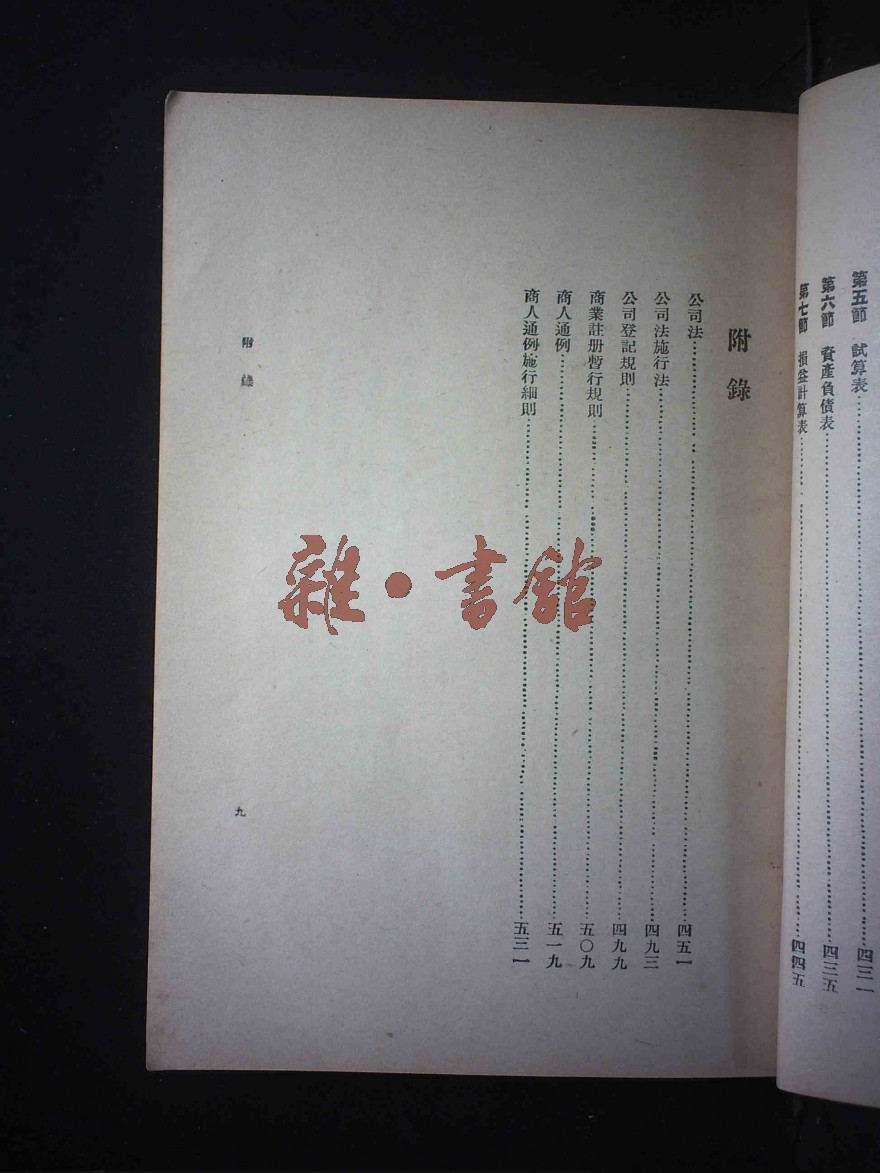 第五節 試算表……四三一
第六節 資產負債表……四三五
第七節 損益計算表……四四五
附錄
公司法……四五一
公司法施行法……四九三
公司登記規則……四九九
商業註册暫行規則……五〇九
商人通例……五一九
商人通例施行細則……五三一
附錄
九
雜·書館